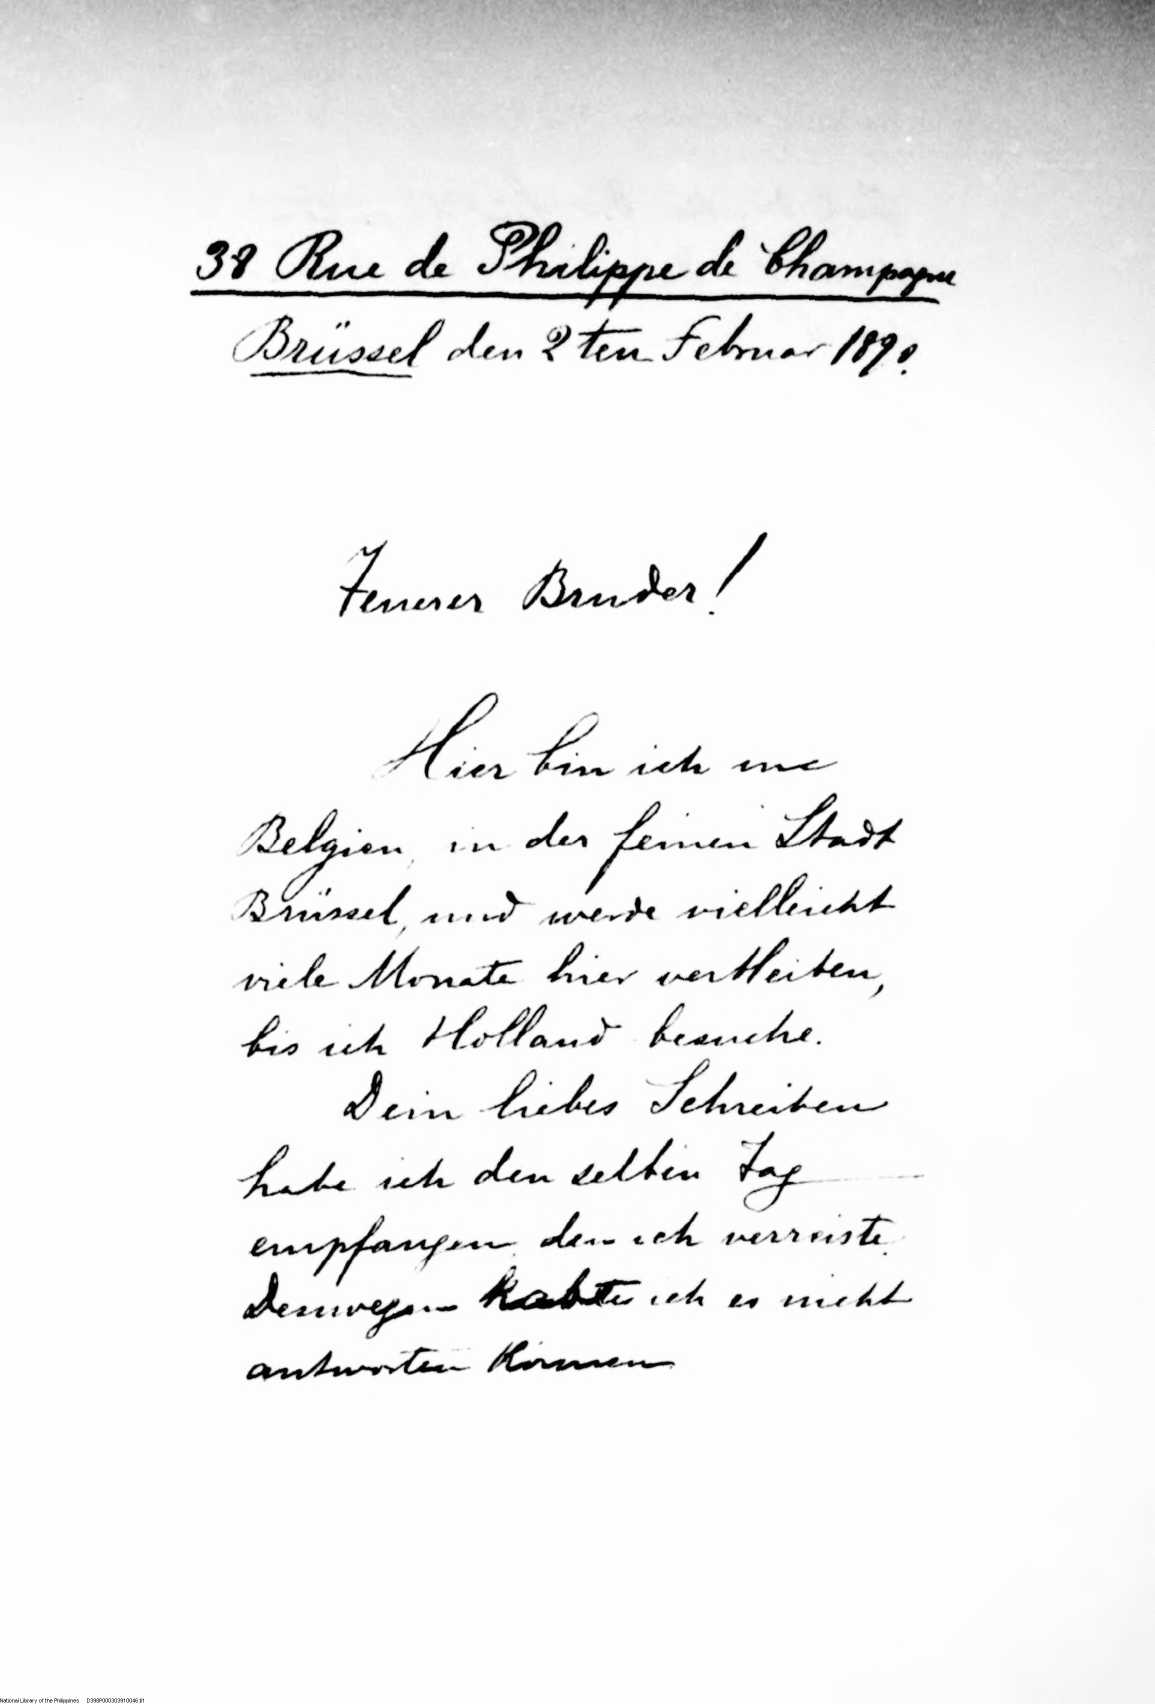 38 Rue de Philippe de Champagne
Brüssel den 2ten Februar 1890.
Teuerer Bruder!
Hier bin ich in
Belgien, in der feinen Stadt
Brüssel, und werde vielleicht
viele Monate hier verbleiben,
bis ich Holland besuche.
Dein liebes Schreiben
habe ich den selben Tag
empfangen den ich verreiste.
Deswegen habte ich es nicht
antworten können
National Library of the Philippines D398P000303910046.tif